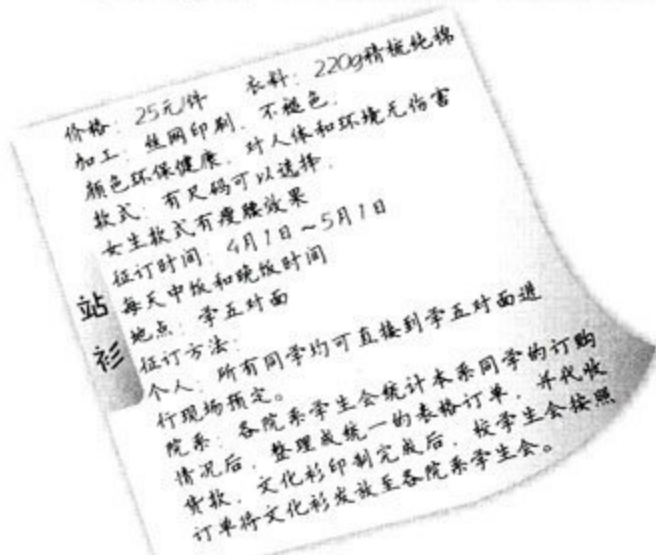 价格：25元/件 衣料：220g精梳纯棉
加工：丝网印刷，不褪色，
颜色环保健康，对人体和环境无伤害
款式：有尺码可以选择，
女生款式有瘦腰效果
征订时间：4月1日～5月1日
每天中饭和晚饭时间
地点：学五对面
征订方法：
个人：所有同学均可直接到学五对面进
行现场预定。
院系：各院系学生会统计本系同学的订购
情况后，整理成统一的表格订单，并代收
货款，文化衫印制完成后，校学生会按照
订单将文化衫发放至各院系学生会。
站
衫